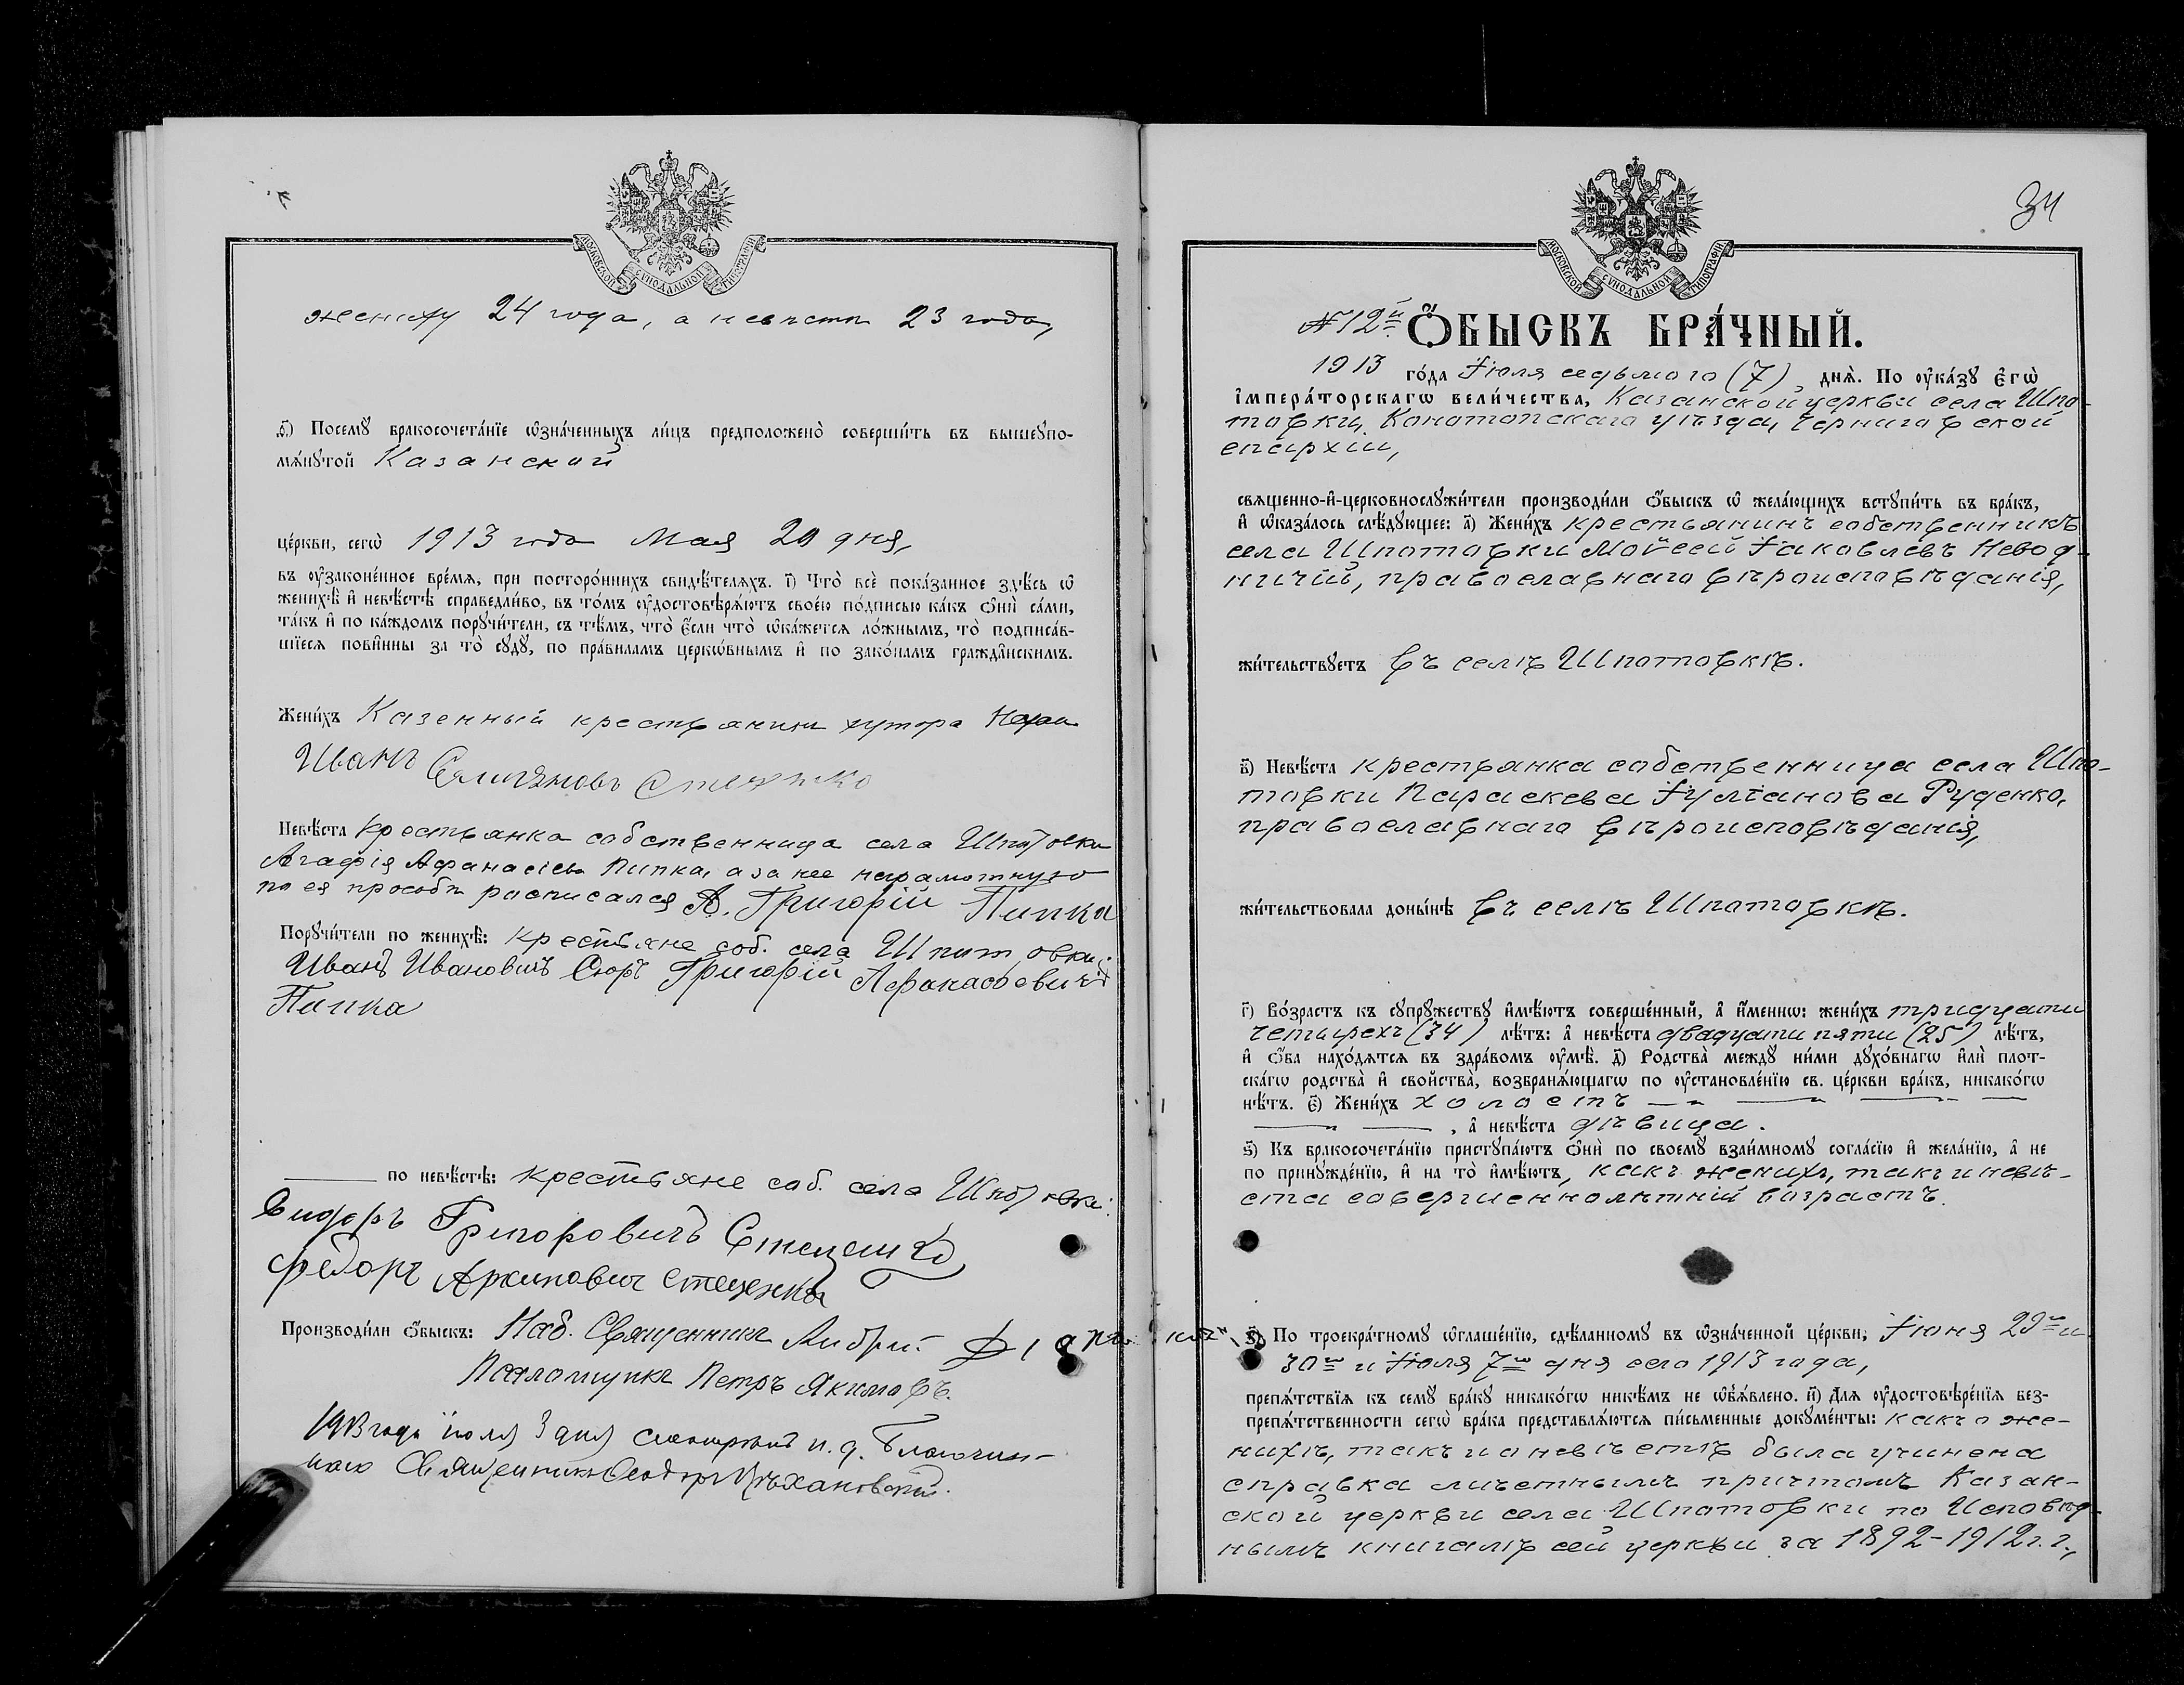 МОСКОВСКОЙ СУНОДАЛЬНОЙ ТИПОГРАФІИ
жениху 24 года, а невѣстѣ 23 года,
Посемꙋ бракосочета́нїе ѡ҆зна́ченныхъ ли́цъ предположено̀ соверши́ть въ вышеꙋпо-
мѧ́нꙋтой Казанской
це́ркви, сегѡ̀ 1913 года Мая 20 дня,
въ ᲂу҆законе́нное вре́мѧ, при посторо́ннихъ свидѣ́телѧхъ. і҃) Что̀ всѐ пока́занное здѣ́сь ѡ҆
женихѣ̀ и҆ невѣ́стѣ справедли́во, въ то́мъ ᲂу҆достовѣрѧ́ютъ свое́ю по́дписью ка́къ ѻ҆нѝ са́ми,
та́къ и҆ по ка́ждомъ порꙋчи́тели, съ тѣ́мъ, что̀ є҆́сли что̀ ѡ҆ка́жетсѧ ло́жнымъ, то̀ подписа́в-
шїесѧ пови́нны за то̀ сꙋдꙋ̀, по пра́виламъ церкѡ́внымъ и҆ по зако́намъ гражда̑нскимъ.
Жени́хъ Казенный крестьянин хутора
Иванъ
Невѣ́ста крестьянка собственница села Шпотовки
Агафія Афанасіева Пипка, а за нее неграмотную
по ея просьбѣ росписался Григорій Пипка
Порꙋчи́тели по женихѣ̀: крестьяне соб. села Шпотовки:
Иванъ Ивановичъ Григорій Афанасьевичъ
Пипка
по невѣ́стѣ: крестьяне соб. села Шпотовки:
Сидоръ Григоровичъ Стеценко
Федоръ Архиповичъ Стеценко
Производи́ли ѻ҆́быскъ: Наб. Священникъ
Псаломщикъ Петръ Якимовъ.
1913 года іюля 3 дня смотрѣлъ и. д. Благочин-
наго Священникъ
34
№ 12й ѺБЫСКЪ БРА́ЧНЫЙ.
1913 го́да Іюля седьмого (7), днѧ̀. По ᲂу҆ка́зꙋ є҆гѡ̀
і҆мпера́торскагѡ вели́чества, Казанской церкви села Шпо-
товки, Конотопскаго уѣзда, Черниговской
епархіи,
свѧщенно-и҆-церковнослꙋжи́тели производи́ли ѻ҆́быскъ ѡ҆ жела́ющихъ встꙋпи́ть въ бра́къ,
и҆ ѡ҆каза́лось слѣ́дꙋющее: а҃) Жени́хъ крестьянинъ собственникъ
села Шпотовки Мойсей Іаковлевъ Невод-
ничій, православнаго вѣроисповѣданія,
жи́тельствꙋетъ въ селѣ Шпотовкѣ.
в҃) Невѣ́ста крестьянка собственница села Шпо-
товки Параскева Іуліанова Руденко,
православнаго вѣроисповѣданія,
жи́тельствовала доны́нѣ въ селѣ Шпотовкѣ.
г҃) Во́зрастъ къ сꙋпрꙋ́жествꙋ и҆мѣ́ютъ соверше́нный, а҆ и҆́меннѡ: жени́хъ тридцати
четырехъ (34) лѣ́тъ: а҆ невѣ́ста двадцати пяти (25) лѣ́тъ,
и҆ ѻ҆́ба нахо́дѧтсѧ въ здра́вомъ ᲂу҆мѣ̀. д҃) Родства̀ междꙋ̀ ни́ми дꙋхо́внагѡ и҆лѝ плот-
ска́гѡ родства̀ и҆ сво́йства̀, возбранѧ́ющагѡ по ᲂу҆становле́нїю св. це́ркви бра́къ, никако́гѡ
нѣ́тъ. є҃) Жени́хъ холостъ
, а҆ невѣ́ста дѣвица.
ѕ҃) Къ бракосочета́нїю пристꙋпа́ютъ ѻ҆нѝ по своемꙋ̀ взаи́мномꙋ согла́сїю и҆ жела́нїю, а҆ не
по принꙋжде́нїю, и҆ на то̀ и҆мѣ́ютъ, какъ женихъ, такъ и невѣ-
ста совершеннолѣтній возрастъ.
з҃) По троекра́тномꙋ ѡ҆глаше́нїю, сдѣ́ланномꙋ въ ѡ҆зна́ченной це́ркви, Іюня 29го и
30го и Іюля 7го дня сего 1913 года,
препѧ́тствїѧ къ семꙋ̀ бра́кꙋ никако́гѡ никѣ́мъ не ѡ҆б̾ѧ́влено. и҃) Длѧ ᲂу҆достовѣре́нїѧ без-
препѧ́тственности сегѡ̀ бра́ка представлѧ́ютсѧ пи́сьменные докꙋме́нты: какъ о же-
нихѣ, такъ и о невѣстѣ была учинена
справка мѣстнымъ причтомъ Казан-
ской церкви села Шпотовки по Исповѣд-
нымъ книгамъ сей церкви за 1892-1912 г.г.,
МОСКОВСКОЙ СУНОДАЛЬНОЙ ТИПОГРАФІИ